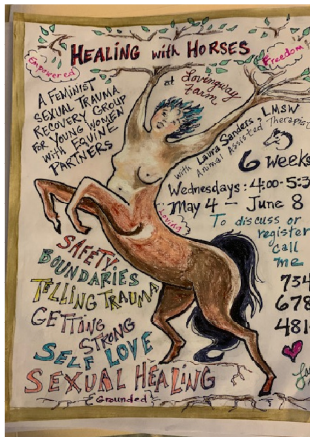 HEALING with HORSES
Empowered
Freedom
at Lovingway
Farm
A FEMINIST
SEXUAL TRAUMA
RECOVERY GROUP
FOR YOUNG WOMEN
WITH EQUINE
PARTNERS
with Laura Sanders, LMSW
Animal Assisted Therapist
6 weeks
Wednesdays: 4:00-5:3
May 4 — June 8
To discuss or
register
call
me
734
678
481
SAFETY
BOUNDARIES
TELLING TRAUMA
GETTING
STRONG
SELF LOVE
SEXUAL HEALING
Grounded